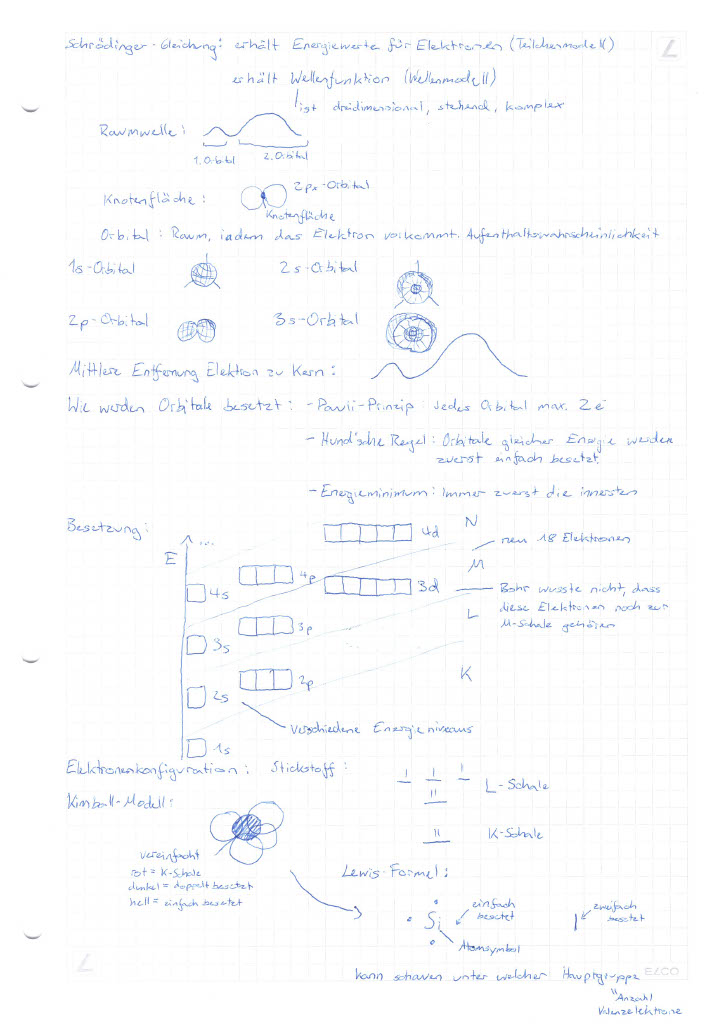 Schrödinger-Gleichung: erhält Energiewerte für Elektronen (Teilchenmodell)
erhält Wellenfunktion (Wellenmodell)
ist dreidimensional, stehend, komplex
Raumwelle:
1. Orbital 2. Orbital
Knotenfläche: 2px-Orbital
Knotenfläche
Orbital: Raum, indem das Elektron vorkommt. Aufenthaltswahrscheinlichkeit
1s-Orbital 2s-Orbital
2p-Orbital 3s-Orbital
Mittlere Entfernung Elektron zu Kern:
Wie werden Orbitale besetzt: - Pauli-Prinzip: Jedes Orbital max. 2e⁻
- Hund'sche Regel: Orbitale gleicher Energie werden
zuerst einfach besetzt.
- Energieminimum: immer zuerst die innersten
Besetzung:
E ... 4d N
neu 18 Elektronen
4p M
4s 3d Bohr wusste nicht, dass
diese Elektronen noch zur
M-Schale gehören
L
3p
3s
2p K
2s
verschiedene Energieniveaus
1s
Elektronenkonfiguration: Stickstoff:
L-Schale
Kimball-Modell:
K-Schale
vereinfacht
rot = K-Schale
dunkel = doppelt besetzt
hell = einfach besetzt
Lewis-Formel:
einfach
besetzt
zweifach
besetzt
Si
Atomsymbol
kann schauen unter welcher Hauptgruppe
"Anzahl
Valenzelektrone
ELCO